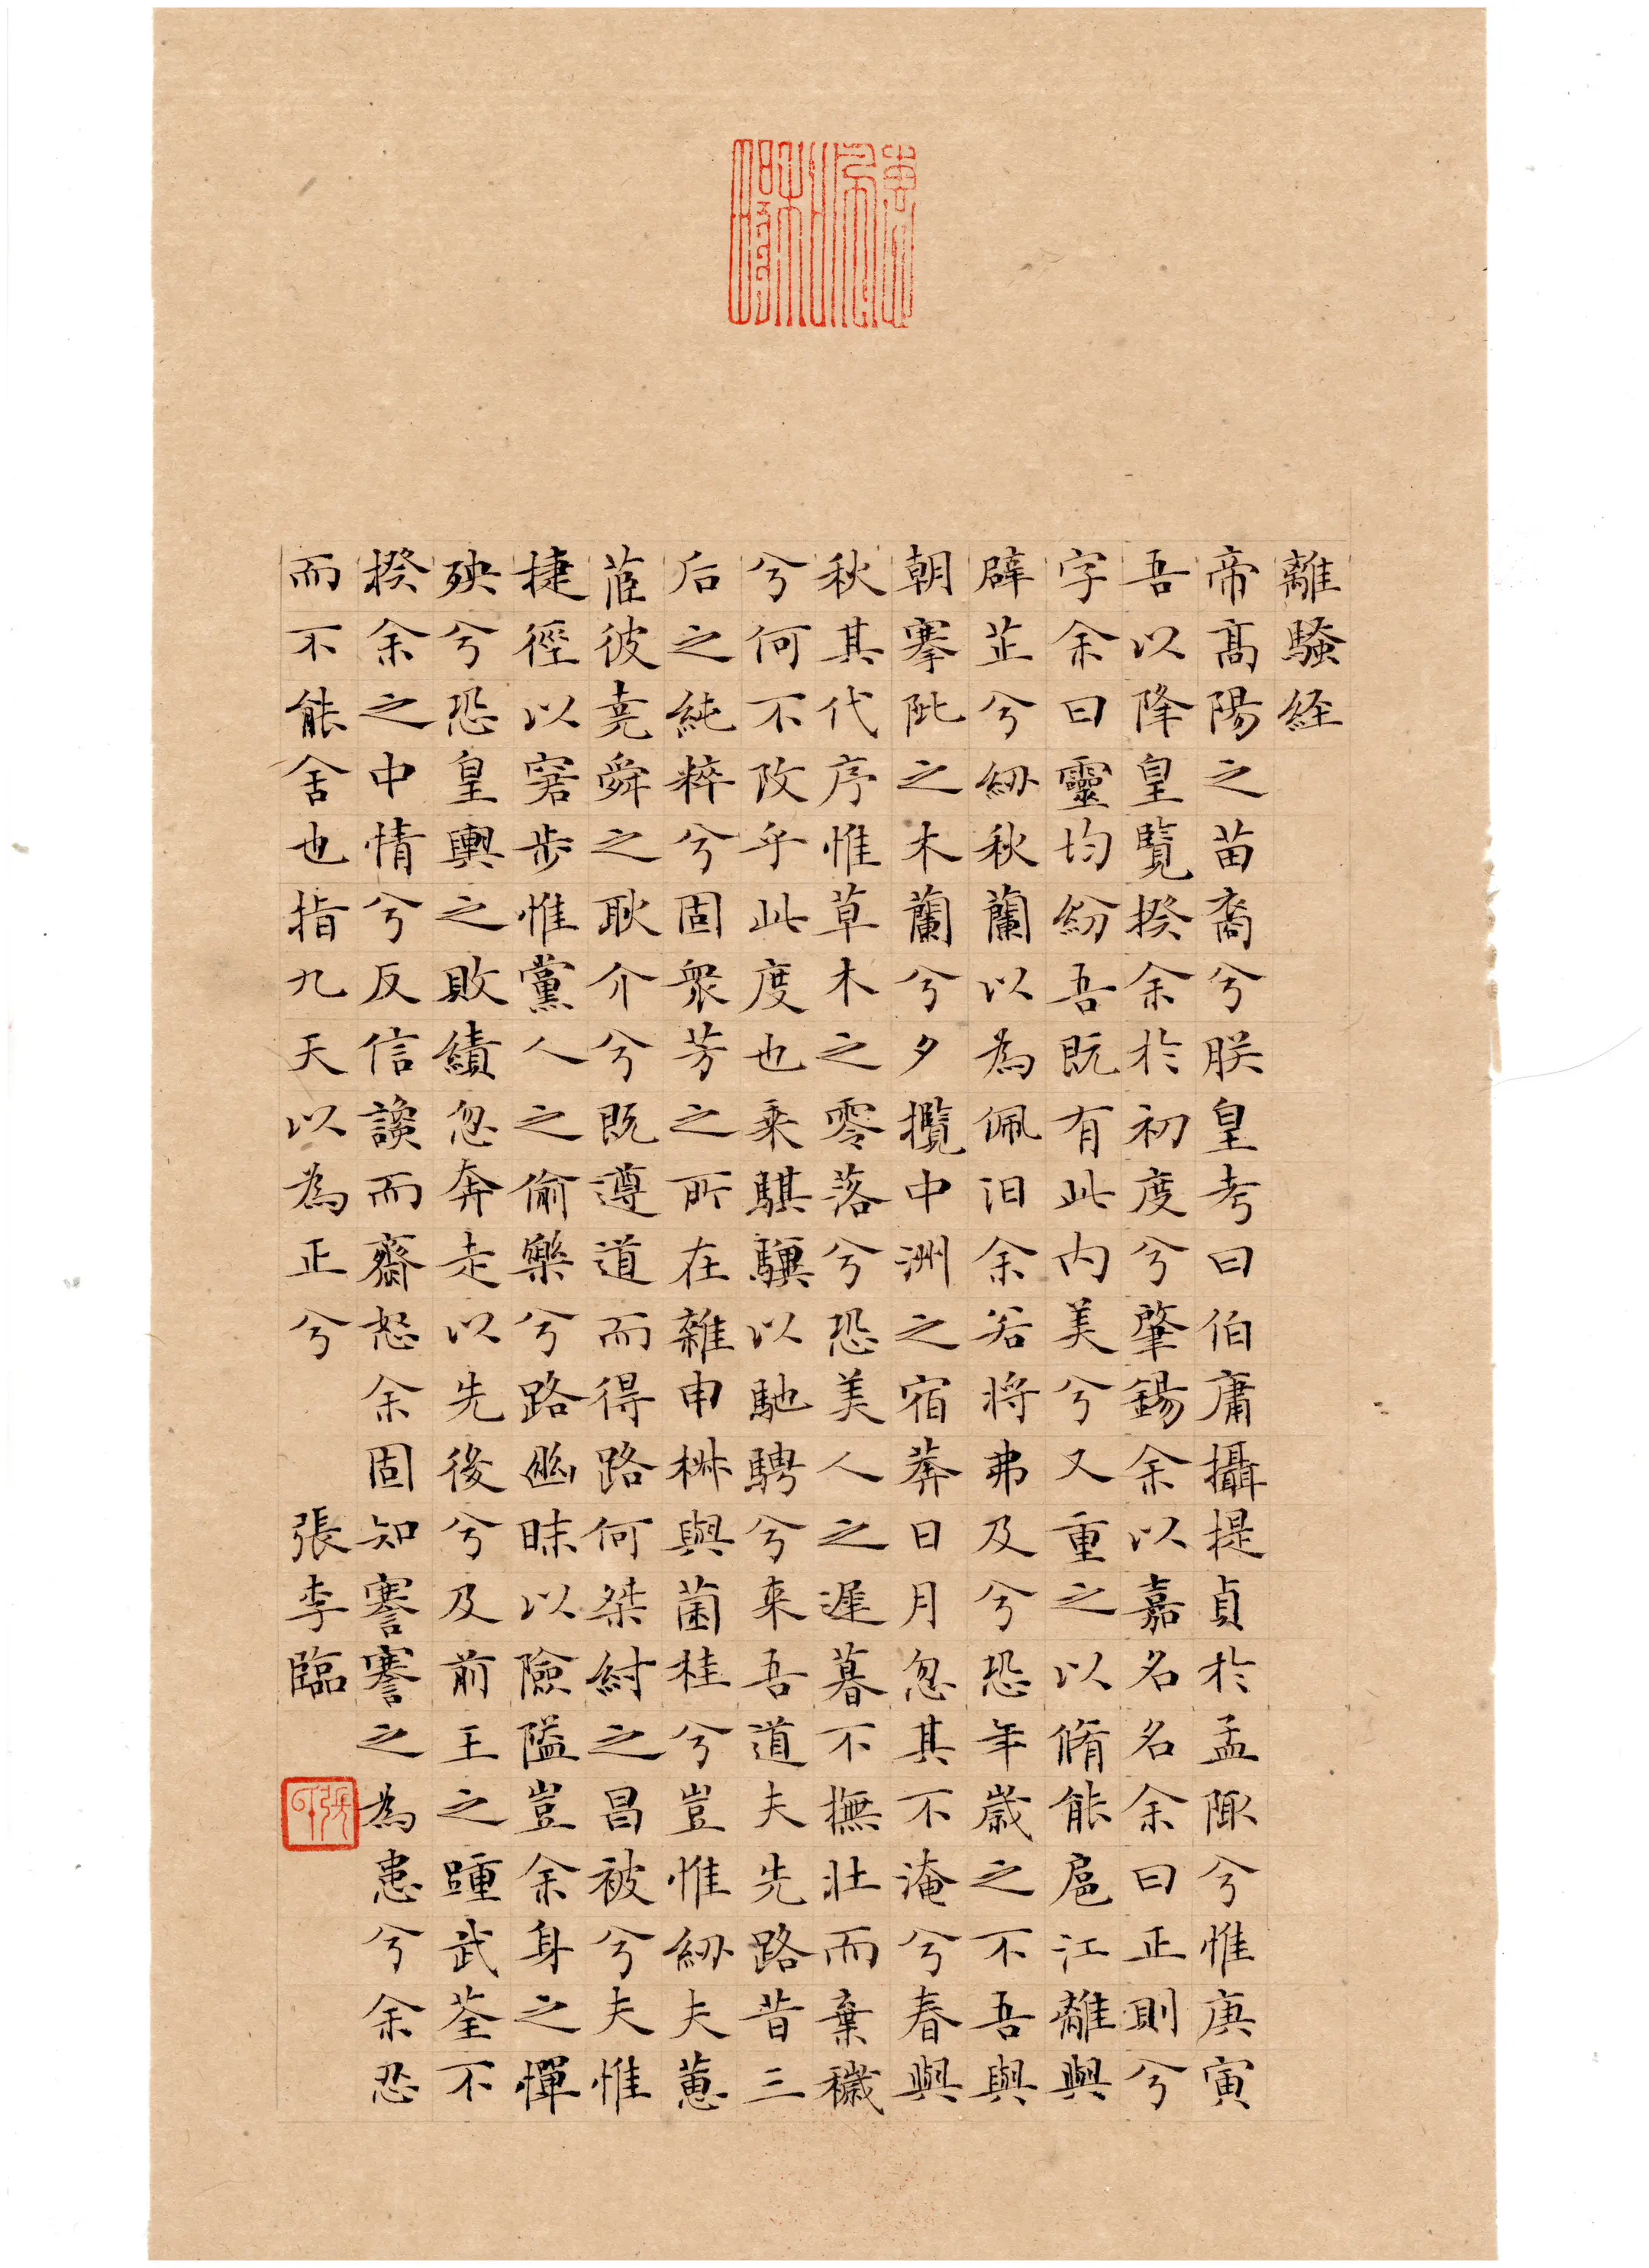 離騷經
帝高陽之苗裔兮朕皇考曰伯庸攝提貞於孟陬兮惟庚寅
吾以降皇覽揆余於初度兮肇錫余以嘉名名余曰正則兮
字余曰靈均紛吾既有此内美兮又重之以脩能扈江離與
辟芷兮紉秋蘭以為佩汩余若將弗及兮恐年歲之不吾與
朝搴阰之木蘭兮夕攬中洲之宿莽日月忽其不淹兮春與
秋其代序惟草木之零落兮恐美人之遲暮不撫壯而棄穢
兮何不改乎此度也乘騏驥以馳騁兮来吾道夫先路昔三
后之純粹兮固衆芳之所在雜申椒與菌桂兮豈惟紉夫蕙
茝彼堯舜之耿介兮既遵道而得路何桀紂之昌被兮夫惟
捷徑以窘步惟黨人之偷樂兮路幽昧以險隘豈余身之憚
殃兮恐皇輿之敗績忽奔走以先後兮及前王之踵武荃不
揆余之中情兮反信讒而齋怒余固知謇謇之為患兮余忍
而不能舍也指九天以為正兮 張李臨